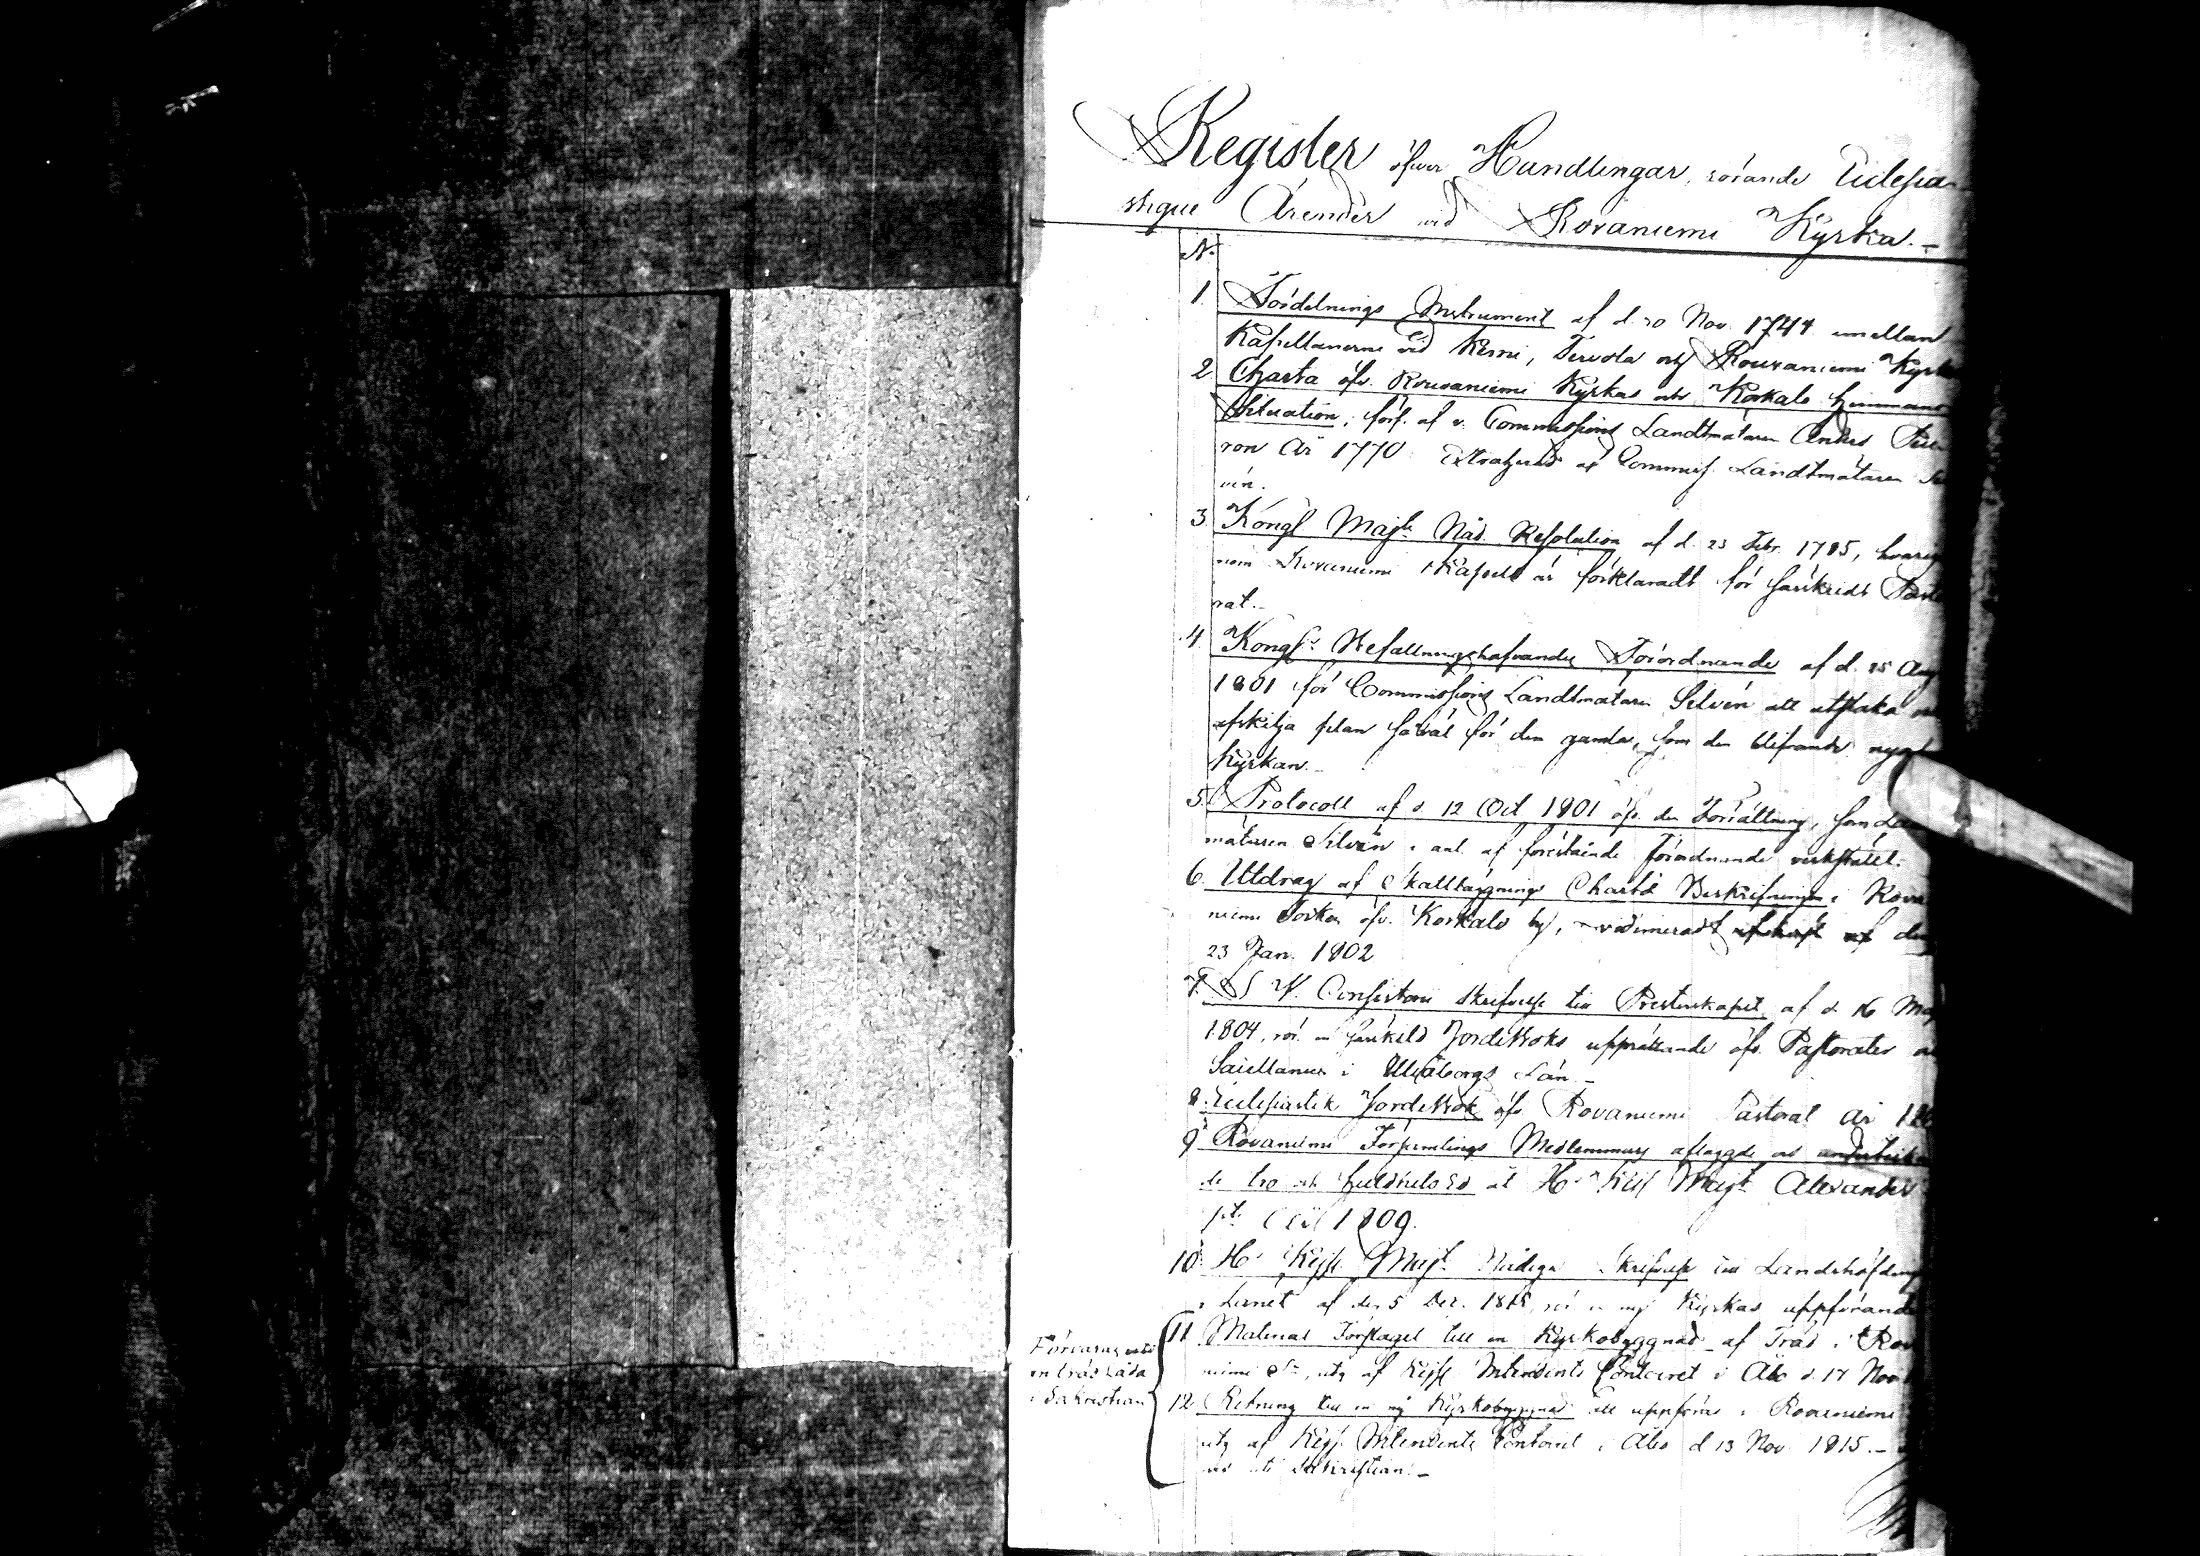 Register öfwer Handlingar, rörande Ecclesia-
stique Ärender wid Rovaniemi Kyrka.-
N:
1 Fördelnings Instrument af d. 20 Nov. 1744 emellan
Kapellanerne vid Kemi, Tervola och Rouvaniemi Kyrk
2 Charta öfv. Rouvaniemi Kyrkas och Korkalo hemmans
Situation, förf. af v. Commissions Landtmätaren
ron År 1770. Extraherad af Commiss. Landtmätaren
vén.
3. Kongl. Maj:ts Nåd. Resolution af d. 23 Febr. 1785, hvarige
nom Rovaniemi Kapell är förklaradt för särskildt Pasto
rat.-
4 Kongl. Befallningshafvandes Förordnande af d. 25 Aug
1801 för Commissions Landtmätaren Selvén att utstaka
afskilja plan såväl för den gamla, som den blifvande nya
Kyrkan.-
5. Protocoll af d. 12 Oct 1801 öfv. den Förrättning, som
mätaren Selvén i anl. af förestående förordnande verkställt.
6. Utdrag af Skattläggnings Charta Beskrifningen i Rova
niemi Socken öfv. Korkalo by, vidimeradt afskrift af den
23 Jan. 1802
7. Consistorii skrifvelse till Presterskapet af d. 16 Maj
1804, rör. en särskild Jordeboks upprättande öfv. Pastorater
Sacellanier i Uleåborgs Län.-
8. Ecclesiastik Jordebok öfv. Rovaniemi Pastorat År
9 Rovaniemi Församlings Medlemmars aflagde och underteckna
de tro och huldhets Ed åt H:s Kejs. Majt. Alexander
1809.
10. H:s Kejs. Majts. Nådiga Skrifvelse till Landshöfding
i Länet af den 5 Dec. 1815, rör. en ny Kyrkas uppförande
11 Material Förslaget till en Kyrkobyggnad af Träd i Rov
niemi S:n, utg. af Kejs. Intendents Contoret i Åbo d. 17 Nov
12 Ritning till en ny Kyrkobyggnad att uppföras i Rovaniemi
utg. af Kejs. Intendents Contoret i Åbo d 13 Nov 1815.-
uti Sakristian.-
Förvaras uti
en träd Låda
i Sakristian